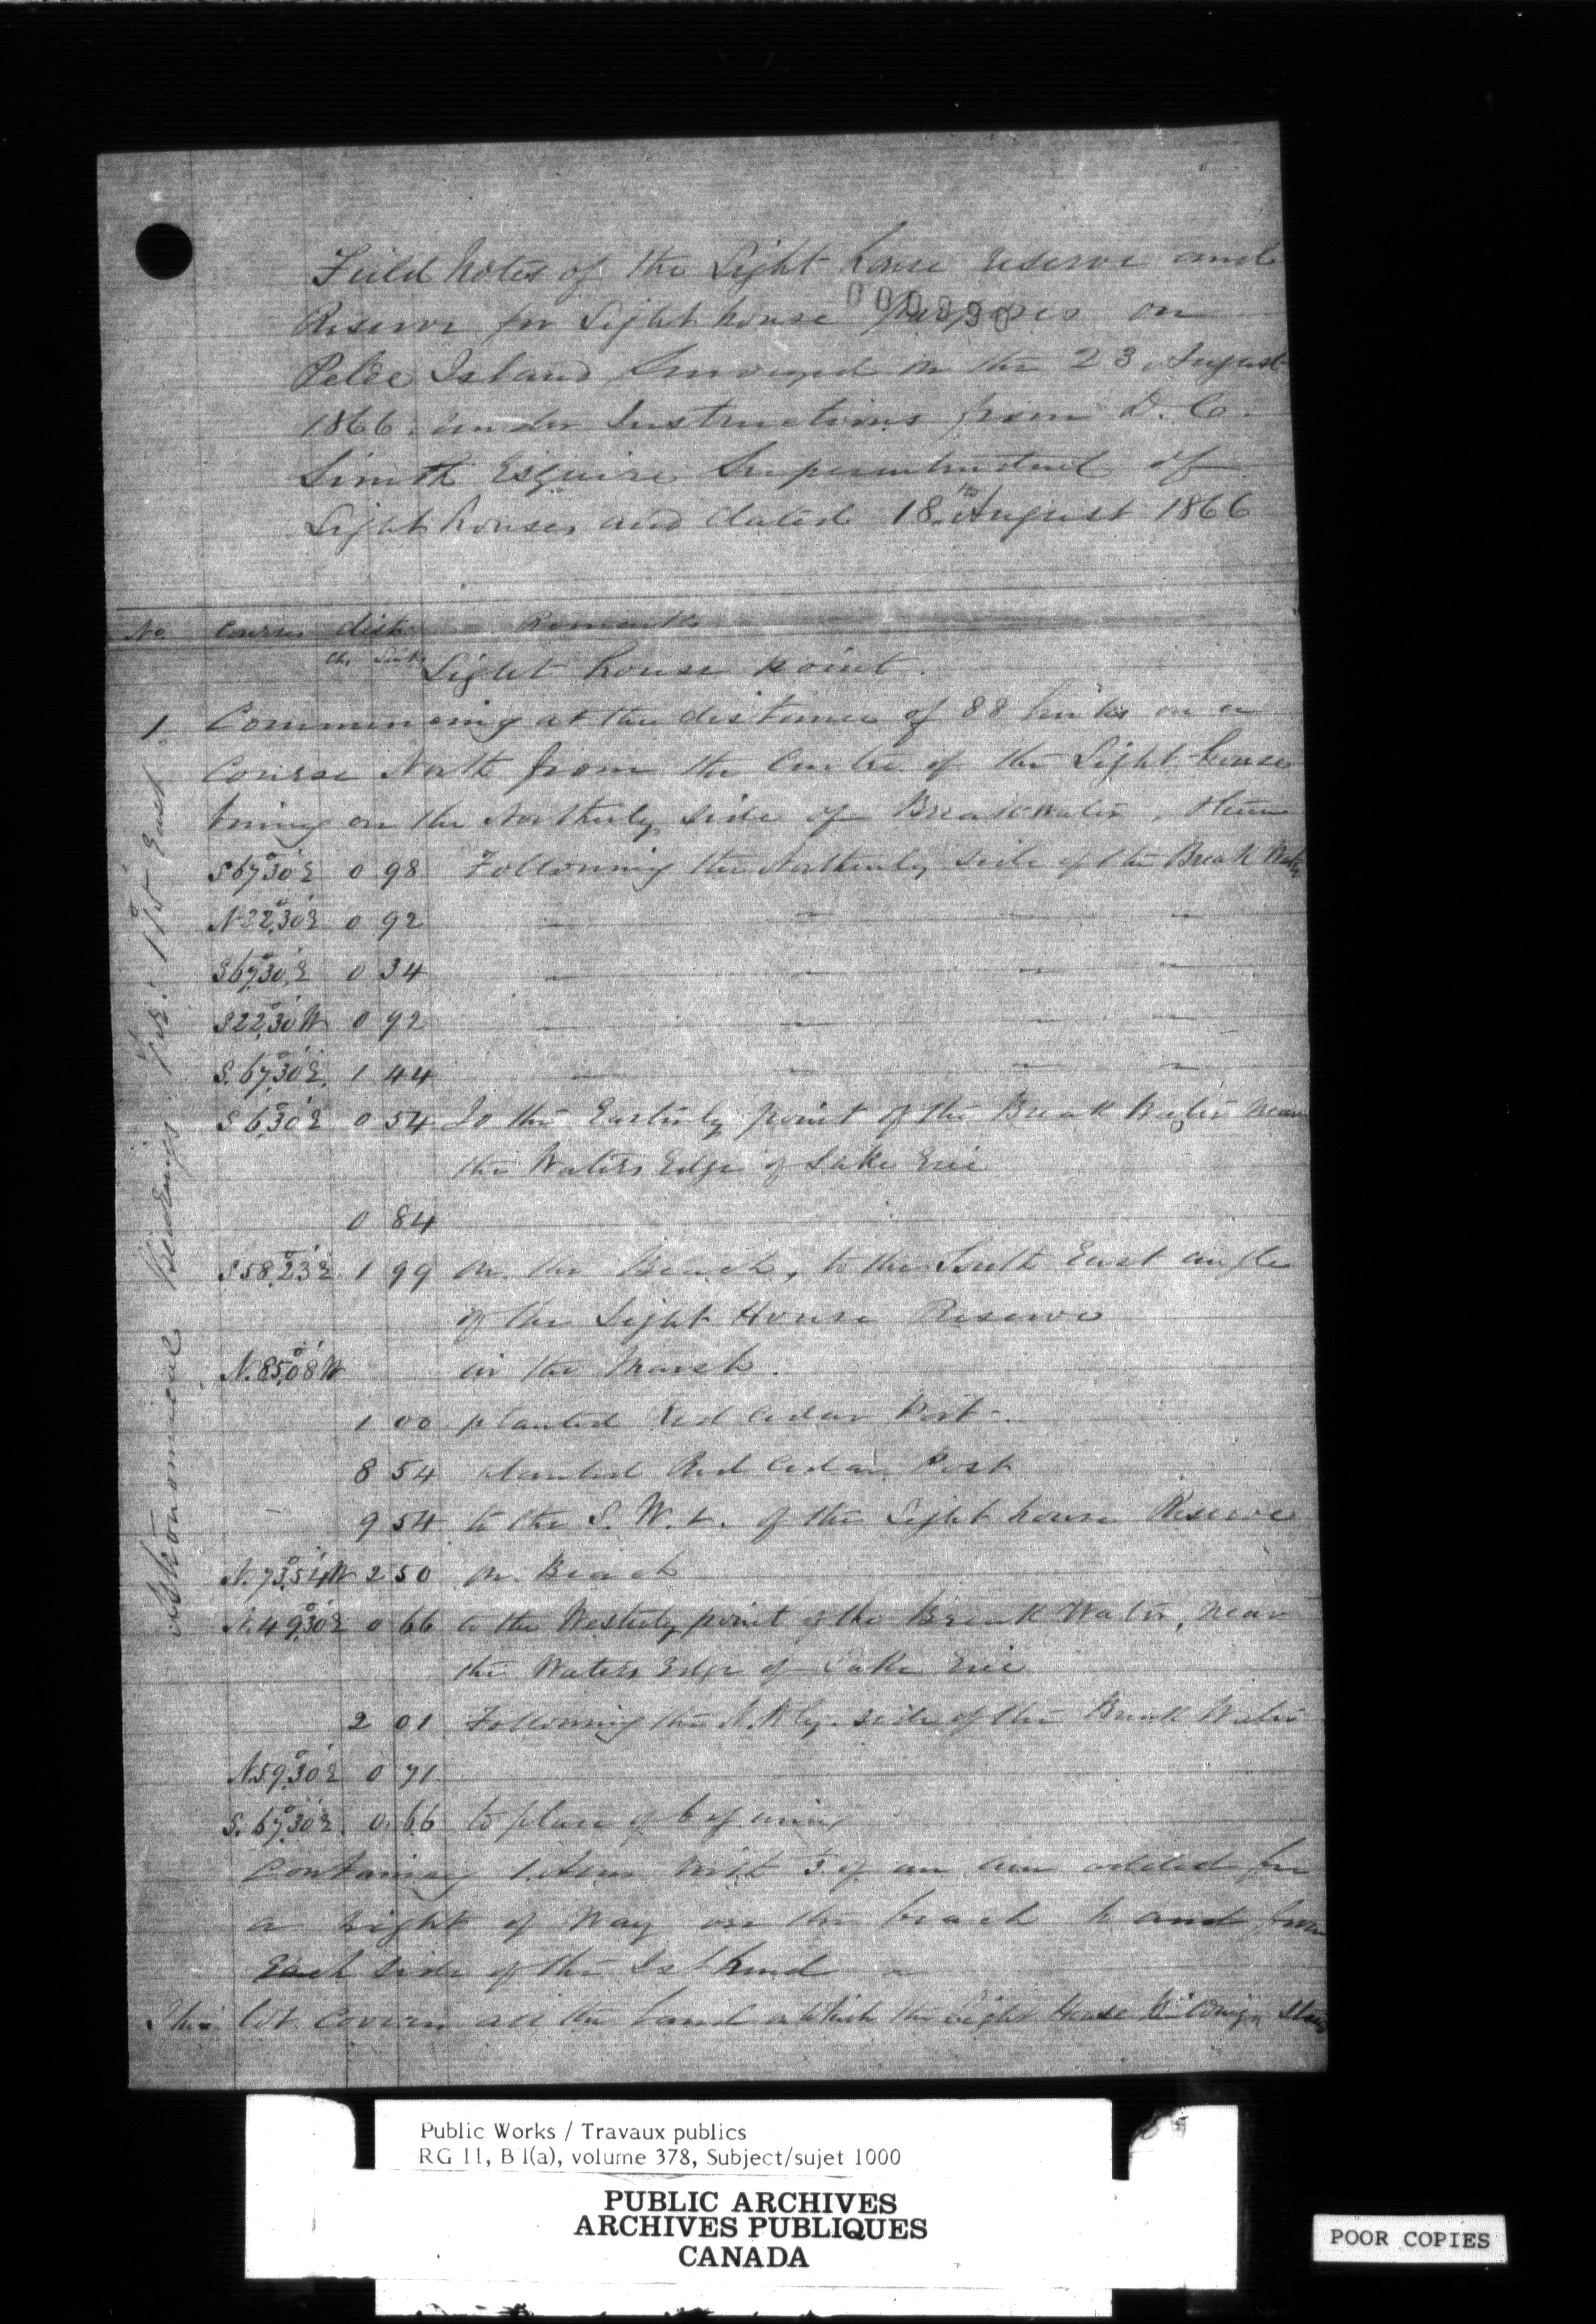 Field Notes of the Light house reserve and
Reserve for Light house purposes on
Pelee Island Surveyed on the 23 August
1866. under Instructions from D. C.
Smith Esquire Superintendent of
Light houses and dated 18th August 1866
No. Courses dist. Remarks
Ch. Links
Light house point.
1. Commencing at the distance of 88 links on a
Course North from the Centre of the Light house
being on the Northerly side of Breakwater, thence
S67°30'E 0 98 Following the Northerly side of the Break Water
N22°30'E 0 92 — — — —
S67°30'E 0 34 — — — —
S22°30'W 0 92 — — — —
S.67°30'E. 1 44 — — — —
S6°30'E 0 54 To the Easterly point of the Break Water near
the Waters Edge of Lake Erie
0 84
S58°23'E 1 99 on the Beach, to the South East angle
of the Light House Reserve
N.85°08'W in the Marsh.
1 00 planted Red Cedar Post.
8 54 planted Red Cedar Post
— 9 54 to the S. W. of the Light house Reserve
N.73°54'W 2 50 on Beach
N.49°30'E 0 66 to the Westerly point of the Break Water, near
the Waters Edge of Lake Erie
2 01 Following the N.Wly. side of the Break Water
N59°30'E 0 71
S.67°30'E. 0.66 to place of beginning
Containing 1 Acre with of an acre added for
a right of Way on the beach to and from
Each side of the Island
This lot Covers all the land on which the Light House Buildings Stand
Astronomical Bearings Var: 1°15' East
Public Works / Travaux publics
RG 11, B 1(a), volume 378, Subject/sujet 1000
PUBLIC ARCHIVES
ARCHIVES PUBLIQUES
CANADA
POOR COPIES